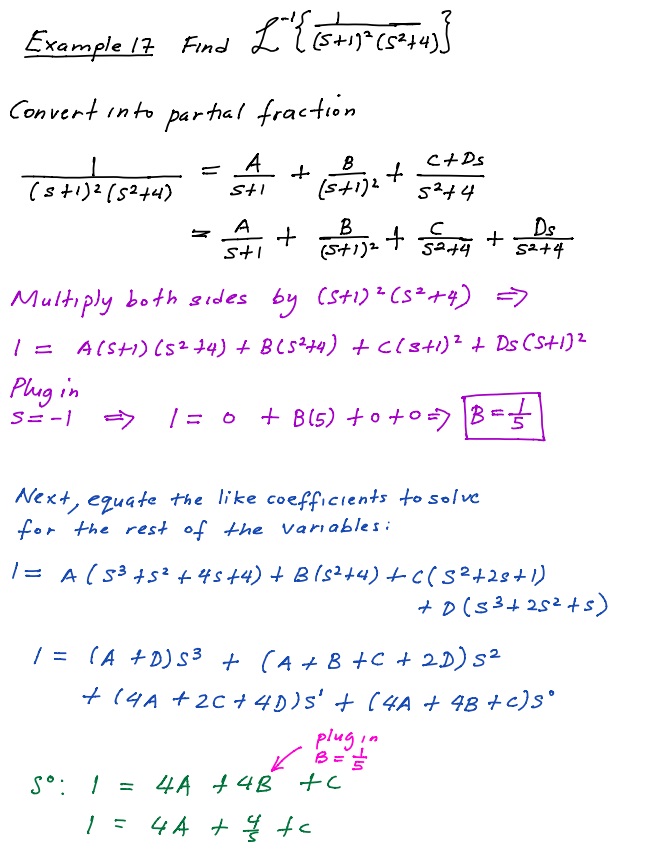 Example 17 Find ℒ⁻¹{1/((s+1)²(s²+4))}
Convert into partial fraction
1/((s+1)²(s²+4)) = A/(s+1) + B/(s+1)² + (C+Ds)/(s²+4)
= A/(s+1) + B/(s+1)² + C/(s²+4) + Ds/(s²+4)
Multiply both sides by (s+1)²(s²+4) ⇒
1 = A(s+1)(s²+4) + B(s²+4) + C(s+1)² + Ds(s+1)²
Plug in
s=-1 ⇒ 1 = 0 + B(5) + 0 + 0 ⇒ B = 1/5
Next, equate the like coefficients to solve
for the rest of the variables:
1 = A(s³+s²+4s+4) + B(s²+4) + C(s²+2s+1)
+ D(s³+2s²+s)
1 = (A+D)s³ + (A+B+C+2D)s²
+ (4A+2C+4D)s¹ + (4A+4B+C)s⁰
plug in
B = 1/5
s⁰: 1 = 4A + 4B + C
1 = 4A + 4/5 + C